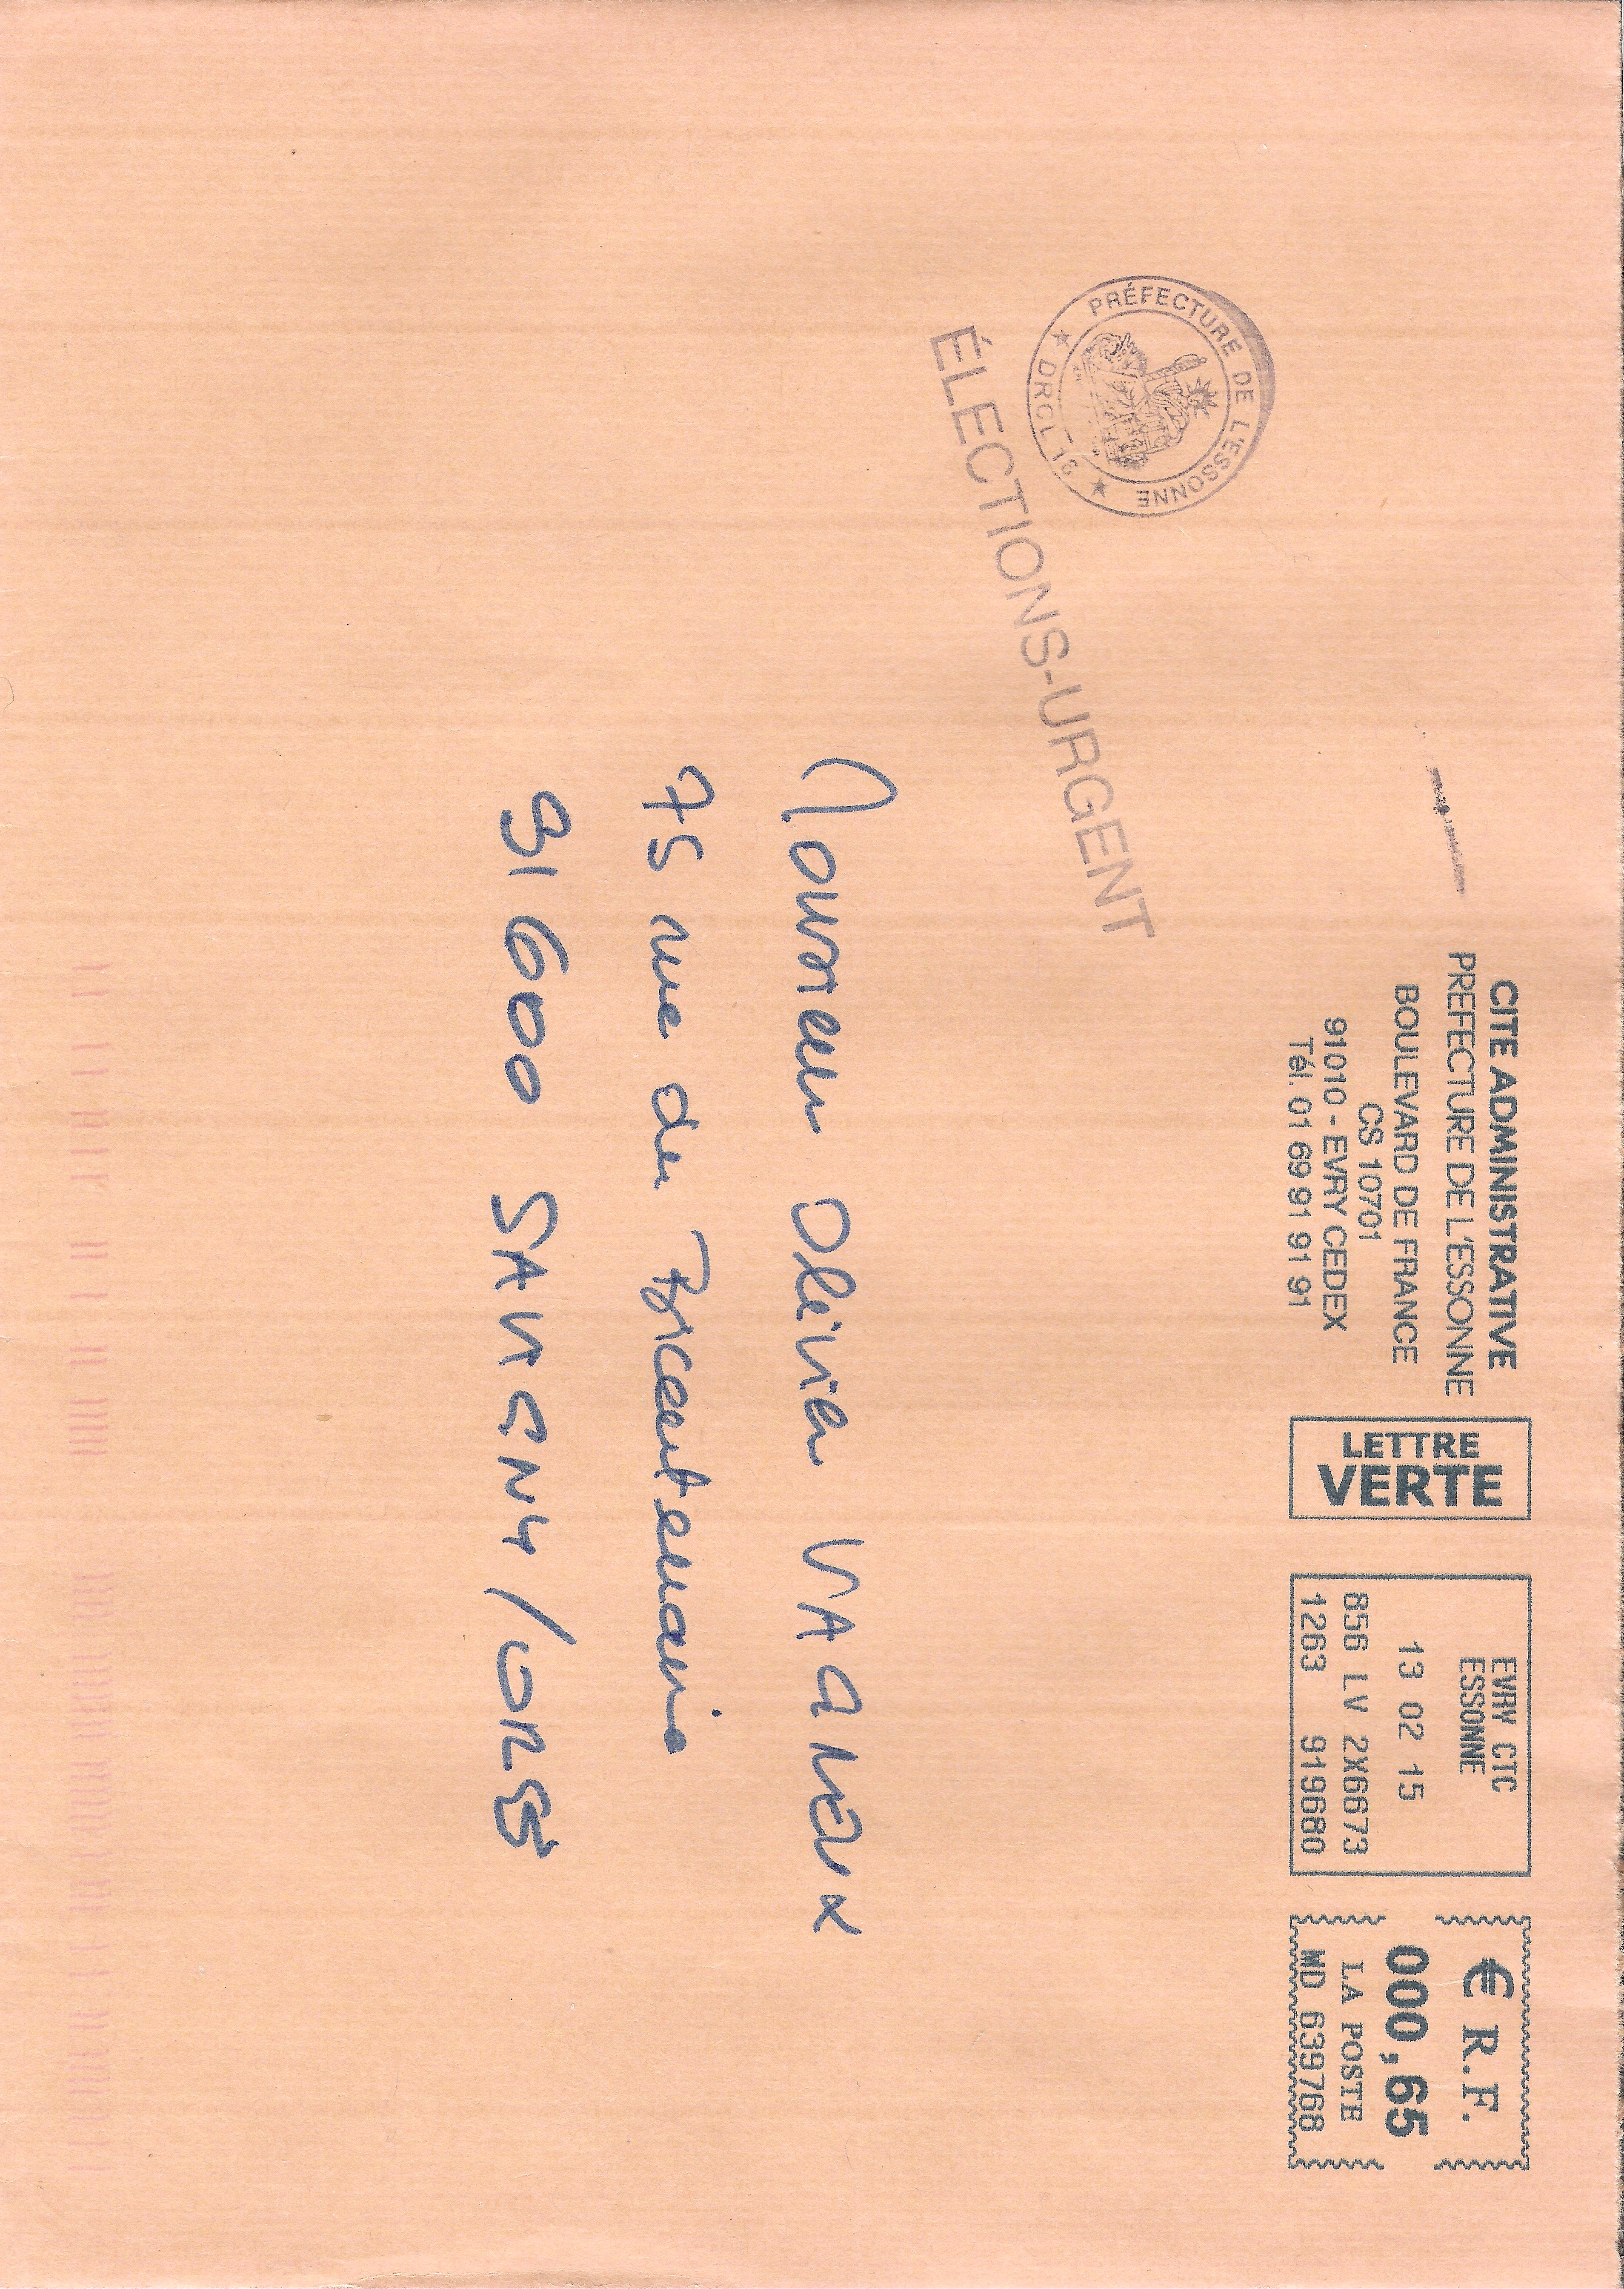 CITE ADMINISTRATIVE
PREFECTURE DE L'ESSONNE
BOULEVARD DE FRANCE
CS 10701
91010 - EVRY CEDEX
Tél. 01 69 91 91 91
LETTRE
VERTE
EVRY CTC
ESSONNE
13 02 15
856 LV 2X6673
1263 919680
€ R.F.
000,65
LA POSTE
MD 639768
PRÉFECTURE DE L'ESSONNE
★ DRCL ★
ÉLECTIONS-URGENT
Monsieur Olivier VAGNEUX
75 rue du Bicentenaire
91600 SAVIGNY/ORGE